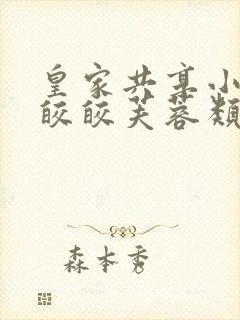 皇家共享小
皎皎芙蓉颓
森本秀